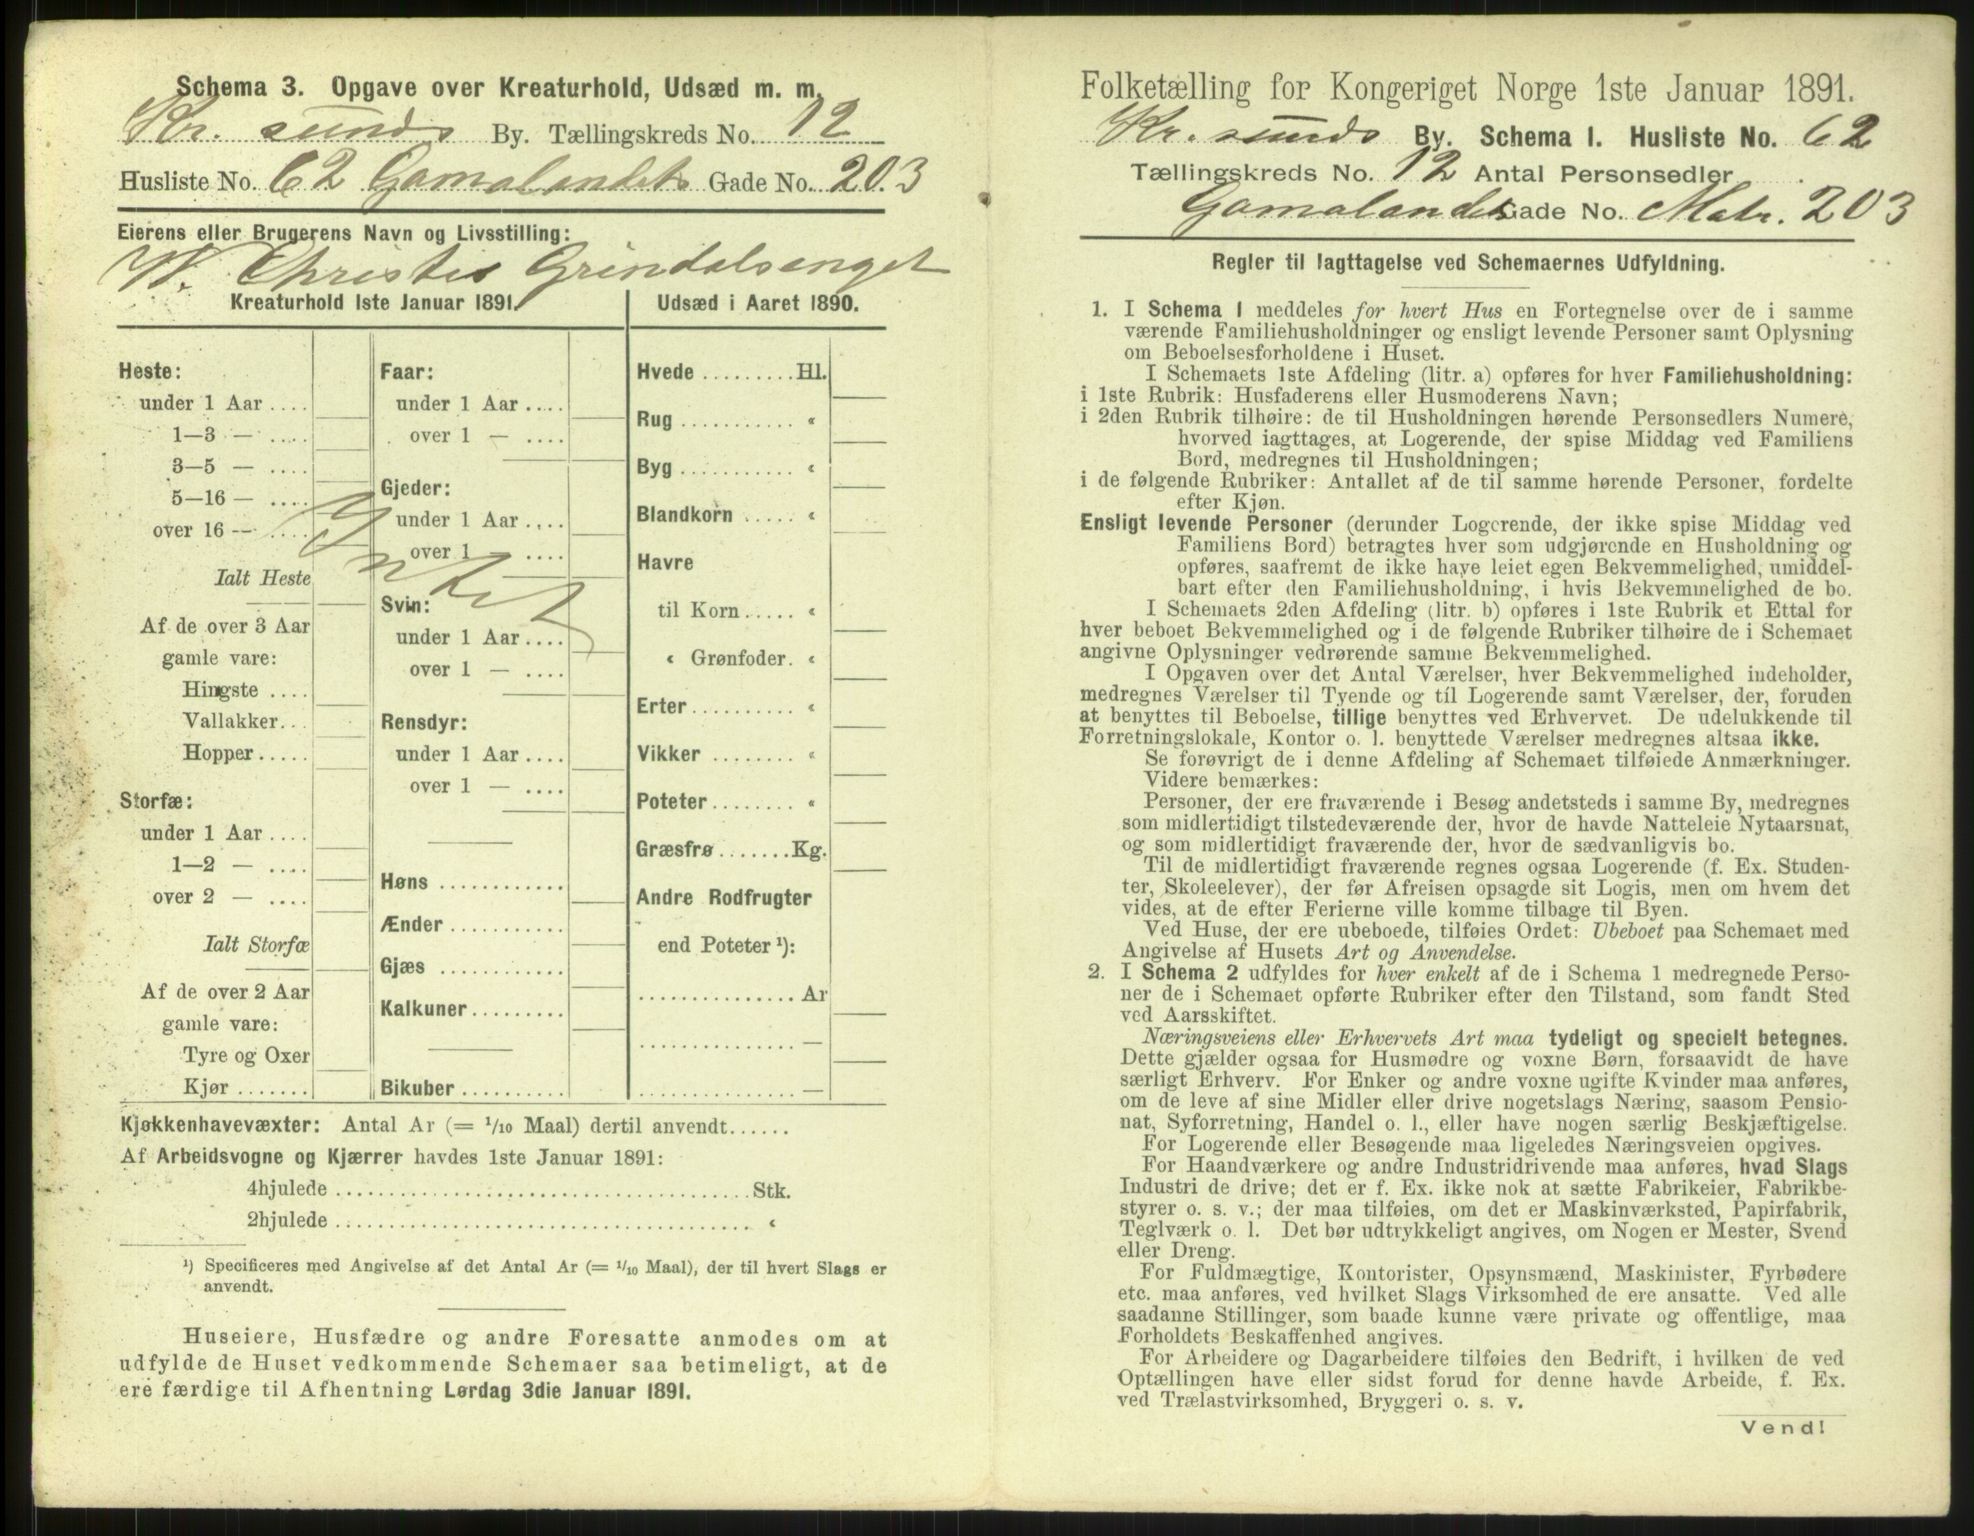 Schema 3. Opgave over Kreaturhold, Udsæd m. m.
Kr. sunds By. Tællingskreds No. 12
Husliste No. 62 Gomalandets Gade No. 203
Eierens eller Brugerens Navn og Livsstilling:
W. Christis Grindalsenget
Kreaturhold 1ste Januar 1891.
Heste:
under 1 Aar ....
1—3 — ....
3—5 — ....
5—16 — ....
over 16 — ....
Ialt Heste
Af de over 3 Aar
gamle vare:
Hingste ....
Vallakker...
Hopper.....
Storfæ:
under 1 Aar ....
1—2 — ....
over 2 — ....
Ialt Storfæ
Af de over 2 Aar
gamle vare:
Tyre og Oxer
Kjør .......
Faar:
under 1 Aar ....
over 1 — ....
Gjeder:
under 1 Aar ....
over 1 — ....
Intet
Svin:
under 1 Aar ....
over 1 — ....
Rensdyr:
under 1 Aar ....
over 1 — ....
Høns ............
Ænder ...........
Gjæs ............
Kalkuner.........
Bikuber ..........
Udsæd i Aaret 1890.
Hvede .........Hl.
Rug ........... «
Byg ........... «
Blandkorn ..... «
Havre
til Korn ..... «
« Grønfoder. «
Erter.......... «
Vikker ........ «
Poteter........ «
Græsfrø.......Kg.
Andre Rodfrugter
end Poteter ¹):
...............Ar
...............—
...............—
Kjøkkenhavevæxter: Antal Ar (= 1/10 Maal) dertil anvendt......
Af Arbeidsvogne og Kjærrer havdes 1ste Januar 1891:
4hjulede ........................................Stk.
2hjulede ........................................ «
¹) Specificeres med Angivelse af det Antal Ar (= 1/10 Maal), der til hvert Slags er
anvendt.
Huseiere, Husfædre og andre Foresatte anmodes om at
udfylde de Huset vedkommende Schemaer saa betimeligt, at de
ere færdige til Afhentning Lørdag 3die Januar 1891.
Folketælling for Kongeriget Norge 1ste Januar 1891.
Kr. sunds By. Schema 1. Husliste No. 62
Tællingskreds No. 12 Antal Personsedler
Gomalandets Gade No. Matr. 203
Regler til Iagttagelse ved Schemaernes Udfyldning.
1. I Schema 1 meddeles for hvert Hus en Fortegnelse over de i samme
værende Familiehusholdninger og ensligt levende Personer samt Oplysning
om Beboelsesforholdene i Huset.
I Schemaets 1ste Afdeling (litr. a) opføres for hver Familiehusholdning:
i 1ste Rubrik: Husfaderens eller Husmoderens Navn;
i 2den Rubrik tilhøire: de til Husholdningen hørende Personsedlers Numere,
hvorved iagttages, at Logerende, der spise Middag ved Familiens
Bord, medregnes til Husholdningen;
i de følgende Rubriker: Antallet af de til samme hørende Personer, fordelte
efter Kjøn.
Ensligt levende Personer (derunder Logerende, der ikke spise Middag ved
Familiens Bord) betragtes hver som udgjørende en Husholdning og
opføres, saafremt de ikke have leiet egen Bekvemmelighed, umiddel-
bart efter den Familiehusholdning, i hvis Bekvemmelighed de bo.
I Schemaets 2den Afdeling (litr. b) opføres i 1ste Rubrik et Ettal for
hver beboet Bekvemmelighed og i de følgende Rubriker tilhøire de i Schemaet
angivne Oplysninger vedrørende samme Bekvemmelighed.
I Opgaven over det Antal Værelser, hver Bekvemmelighed indeholder,
medregnes Værelser til Tyende og til Logerende samt Værelser, der, foruden
at benyttes til Beboelse, tillige benyttes ved Erhvervet. De udelukkende til
Forretningslokale, Kontor o. l. benyttede Værelser medregnes altsaa ikke.
Se forøvrigt de i denne Afdeling af Schemaet tilføiede Anmærkninger.
Videre bemærkes:
Personer, der ere fraværende i Besøg andetsteds i samme By, medregnes
som midlertidigt tilstedeværende der, hvor de havde Natteleie Nytaarsnat,
og som midlertidigt fraværende der, hvor de sædvanligvis bo.
Til de midlertidigt fraværende regnes ogsaa Logerende (f. Ex. Studen-
ter, Skoleelever), der før Afreisen opsagde sit Logis, men om hvem det
vides, at de efter Ferierne ville komme tilbage til Byen.
Ved Huse, der ere ubeboede, tilføies Ordet: Ubeboet paa Schemaet med
Angivelse af Husets Art og Anvendelse.
2. I Schema 2 udfyldes for hver enkelt af de i Schema 1 medregnede Perso-
ner de i Schemaet opførte Rubriker efter den Tilstand, som fandt Sted
ved Aarsskiftet.
Næringsveiens eller Erhvervets Art maa tydeligt og specielt betegnes.
Dette gjælder ogsaa for Husmødre og voxne Børn, forsaavidt de have
særligt Erhverv. For Enker og andre voxne ugifte Kvinder maa anføres,
om de leve af sine Midler eller drive nogetslags Næring, saasom Pensio-
nat, Syforretning, Handel o. l., eller have nogen særlig Beskjæftigelse.
For Logerende eller Besøgende maa ligeledes Næringsveien opgives.
For Haandværkere og andre Industridrivende maa anføres, hvad Slags
Industri de drive; det er f. Ex. ikke nok at sætte Fabrikeier, Fabrikbe-
styrer o. s. v.; der maa tilføies, om det er Maskinværksted, Papirfabrik,
Teglværk o. l. Det bør udtrykkeligt angives, om Nogen er Mester, Svend
eller Dreng.
For Fuldmægtige, Kontorister, Opsynsmænd, Maskinister, Fyrbødere
etc. maa anføres, ved hvilket Slags Virksomhed de ere ansatte. Ved alle
saadanne Stillinger, som baade kunne være private og offentlige, maa
Forholdets Beskaffenhed angives.
For Arbeidere og Dagarbeidere tilføies den Bedrift, i hvilken de ved
Optællingen have eller sidst forud for denne havde Arbeide, f. Ex.
ved Trælastvirksomhed, Bryggeri o. s. v.
Vend!